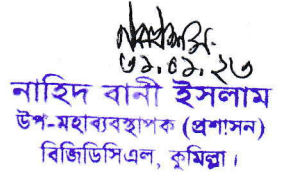 ৩১.০১.২৩
নাহিদ বানী ইসলাম
উপ-মহাব্যবস্থাপক (প্রশাসন)
বিজিডিসিএল, কুমিল্লা।